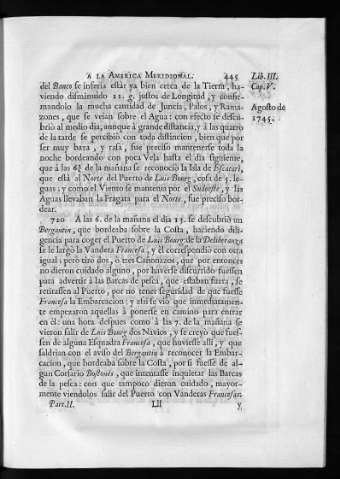 A LA AMERICA MERIDIONAL. 445
Lib. III.
Cap. V.
Agosto de
1745.
del Banco se inferia estàr ya bien cerca de la Tierra, ha-
viendo disminuido 11. g. justos de Longitud, y confir-
mandolo la mucha cantidad de Juncia, Palos, y Rama-
zones, que se veìan sobre el Agua: con efecto se descu-
briò al medio dia, aunque à grande distancia, y à las quatro
de la tarde se percibiò con toda distincion, bien que por
ser muy baxa, y rasa, fue preciso mantenerse toda la
noche bordeando con poca Vela hasta el dia siguiente,
que à las 6¾ de la mañana se reconociò la Isla de Escatarì,
que està al Norte del Puerto de Luis Bourg, cosa de 5. le-
guas; y como el Viento se mantenia por el Sudoeste, y las
Aguas llevaban la Fragata para el Norte, fue preciso bor-
dear.
720 A las 6. de la mañana el dia 13. se descubriò un
Bergantin, que bordeaba sobre la Costa, haciendo dili-
gencia para coger el Puerto de Luis Bourg: de la Deliberanza
se le largò la Vandera Francesa, y èl correspondiò con otra
igual; pero tirò dos, ò tres Cañonazos, que por entonces
no dieron cuidado alguno, por haverse discurrido fuessen
para advertir à las Barcas de pesca, que estaban fuera, se
retirassen al Puerto, por no tener seguridad de que fuesse
Francesa la Embarcacion; y assi se viò que inmediatamen-
te empezaron aquellas à ponerse en camino para entrar
en èl: una hora despues como à las 7. de la mañana se
vieron salir de Luis Bourg dos Navios, y se creyò que fues-
sen de alguna Esquadra Francesa, que huviesse allì, y que
saldrian con el aviso del Bergantin à reconocer la Embar-
cacion, que bordeaba sobre la Costa, por si fuesse de al-
gun Corsario Bostonès, que intentasse inquietar las Barcas
de la pesca: con que tampoco dieron cuidado, mayor-
mente viendolos salir del Puerto con Vanderas Francesas.
Part. II. Lll y